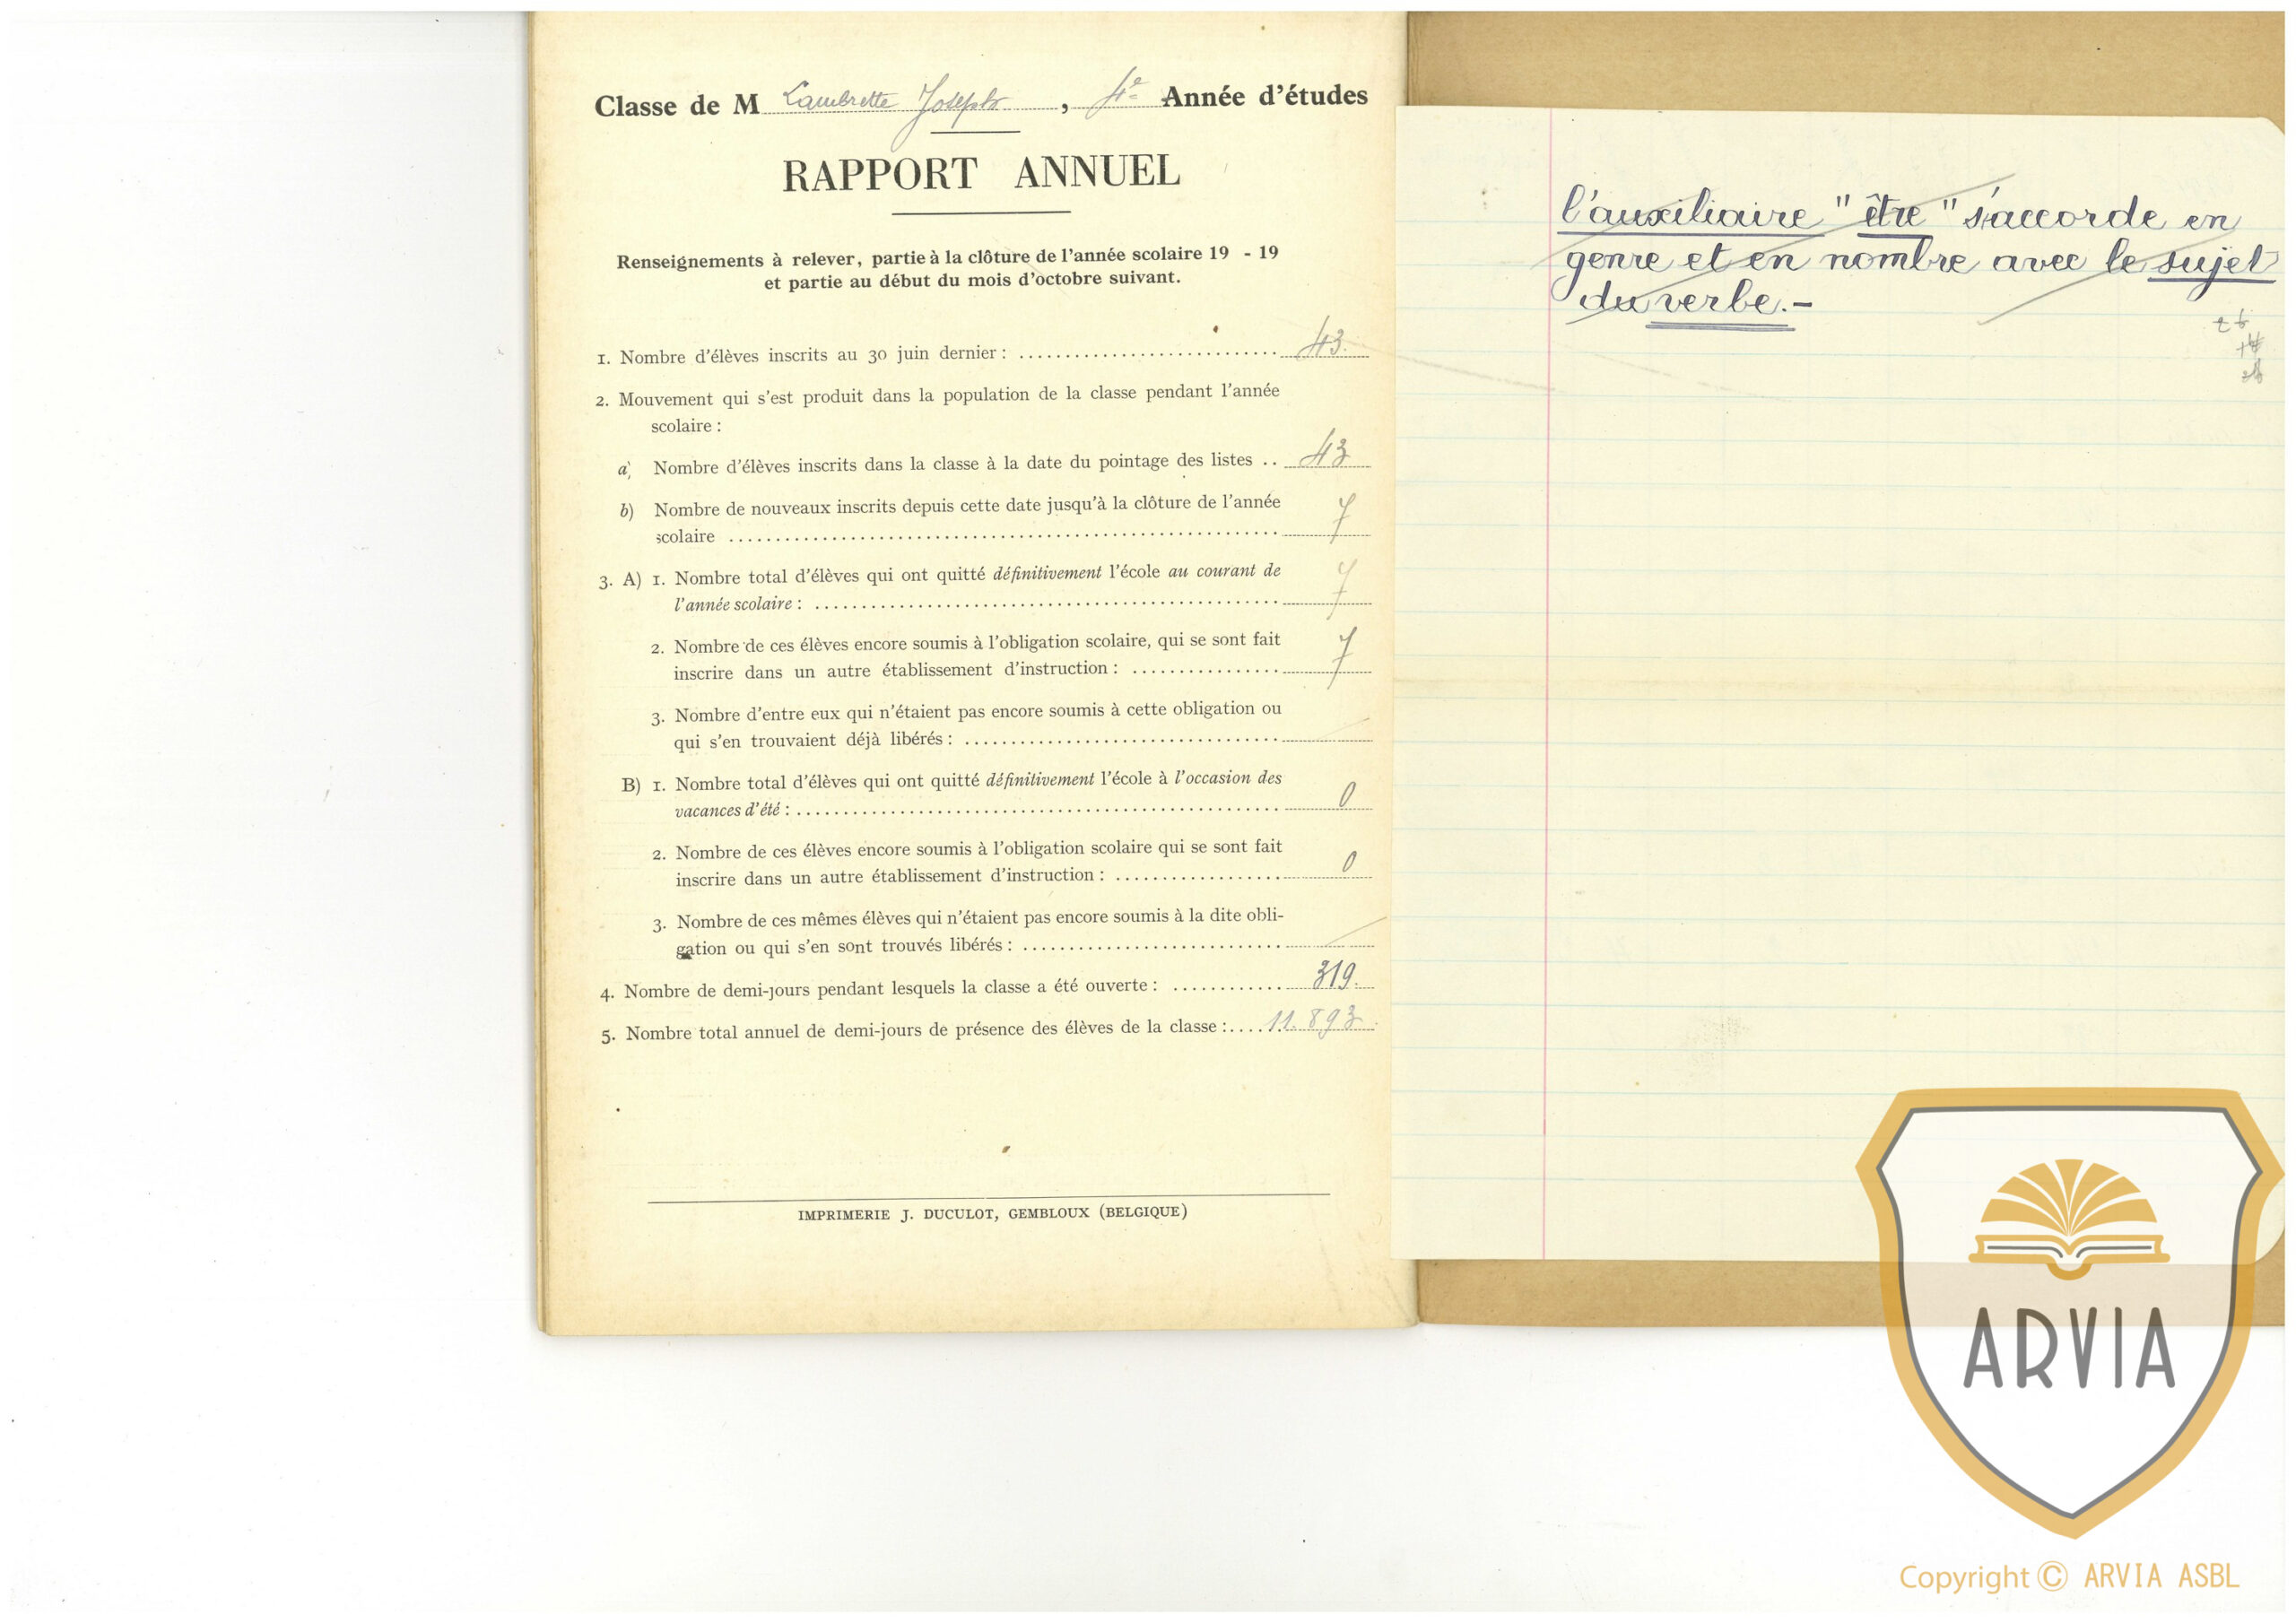 Classe de M Lambrette Joseph , 4e Année d'études
RAPPORT ANNUEL
Renseignements à relever, partie à la clôture de l'année scolaire 19 - 19
et partie au début du mois d'octobre suivant.
1. Nombre d'élèves inscrits au 30 juin dernier : 43.
2. Mouvement qui s'est produit dans la population de la classe pendant l'année
scolaire :
a) Nombre d'élèves inscrits dans la classe à la date du pointage des listes .. 43
b) Nombre de nouveaux inscrits depuis cette date jusqu'à la clôture de l'année
scolaire 7
3. A) 1. Nombre total d'élèves qui ont quitté définitivement l'école au courant de
l'année scolaire : 7
2. Nombre de ces élèves encore soumis à l'obligation scolaire, qui se sont fait
inscrire dans un autre établissement d'instruction : 7
3. Nombre d'entre eux qui n'étaient pas encore soumis à cette obligation ou
qui s'en trouvaient déjà libérés :
B) 1. Nombre total d'élèves qui ont quitté définitivement l'école à l'occasion des
vacances d'été : 0
2. Nombre de ces élèves encore soumis à l'obligation scolaire qui se sont fait
inscrire dans un autre établissement d'instruction : 0
3. Nombre de ces mêmes élèves qui n'étaient pas encore soumis à la dite obli-
gation ou qui s'en sont trouvés libérés :
4. Nombre de demi-jours pendant lesquels la classe a été ouverte : 319.
5. Nombre total annuel de demi-jours de présence des élèves de la classe : 11.893
IMPRIMERIE J. DUCULOT, GEMBLOUX (BELGIQUE)
l'auxiliaire "être" s'accorde en
genre et en nombre avec le sujet
du verbe.-
ARVIA
Copyright © ARVIA ASBL